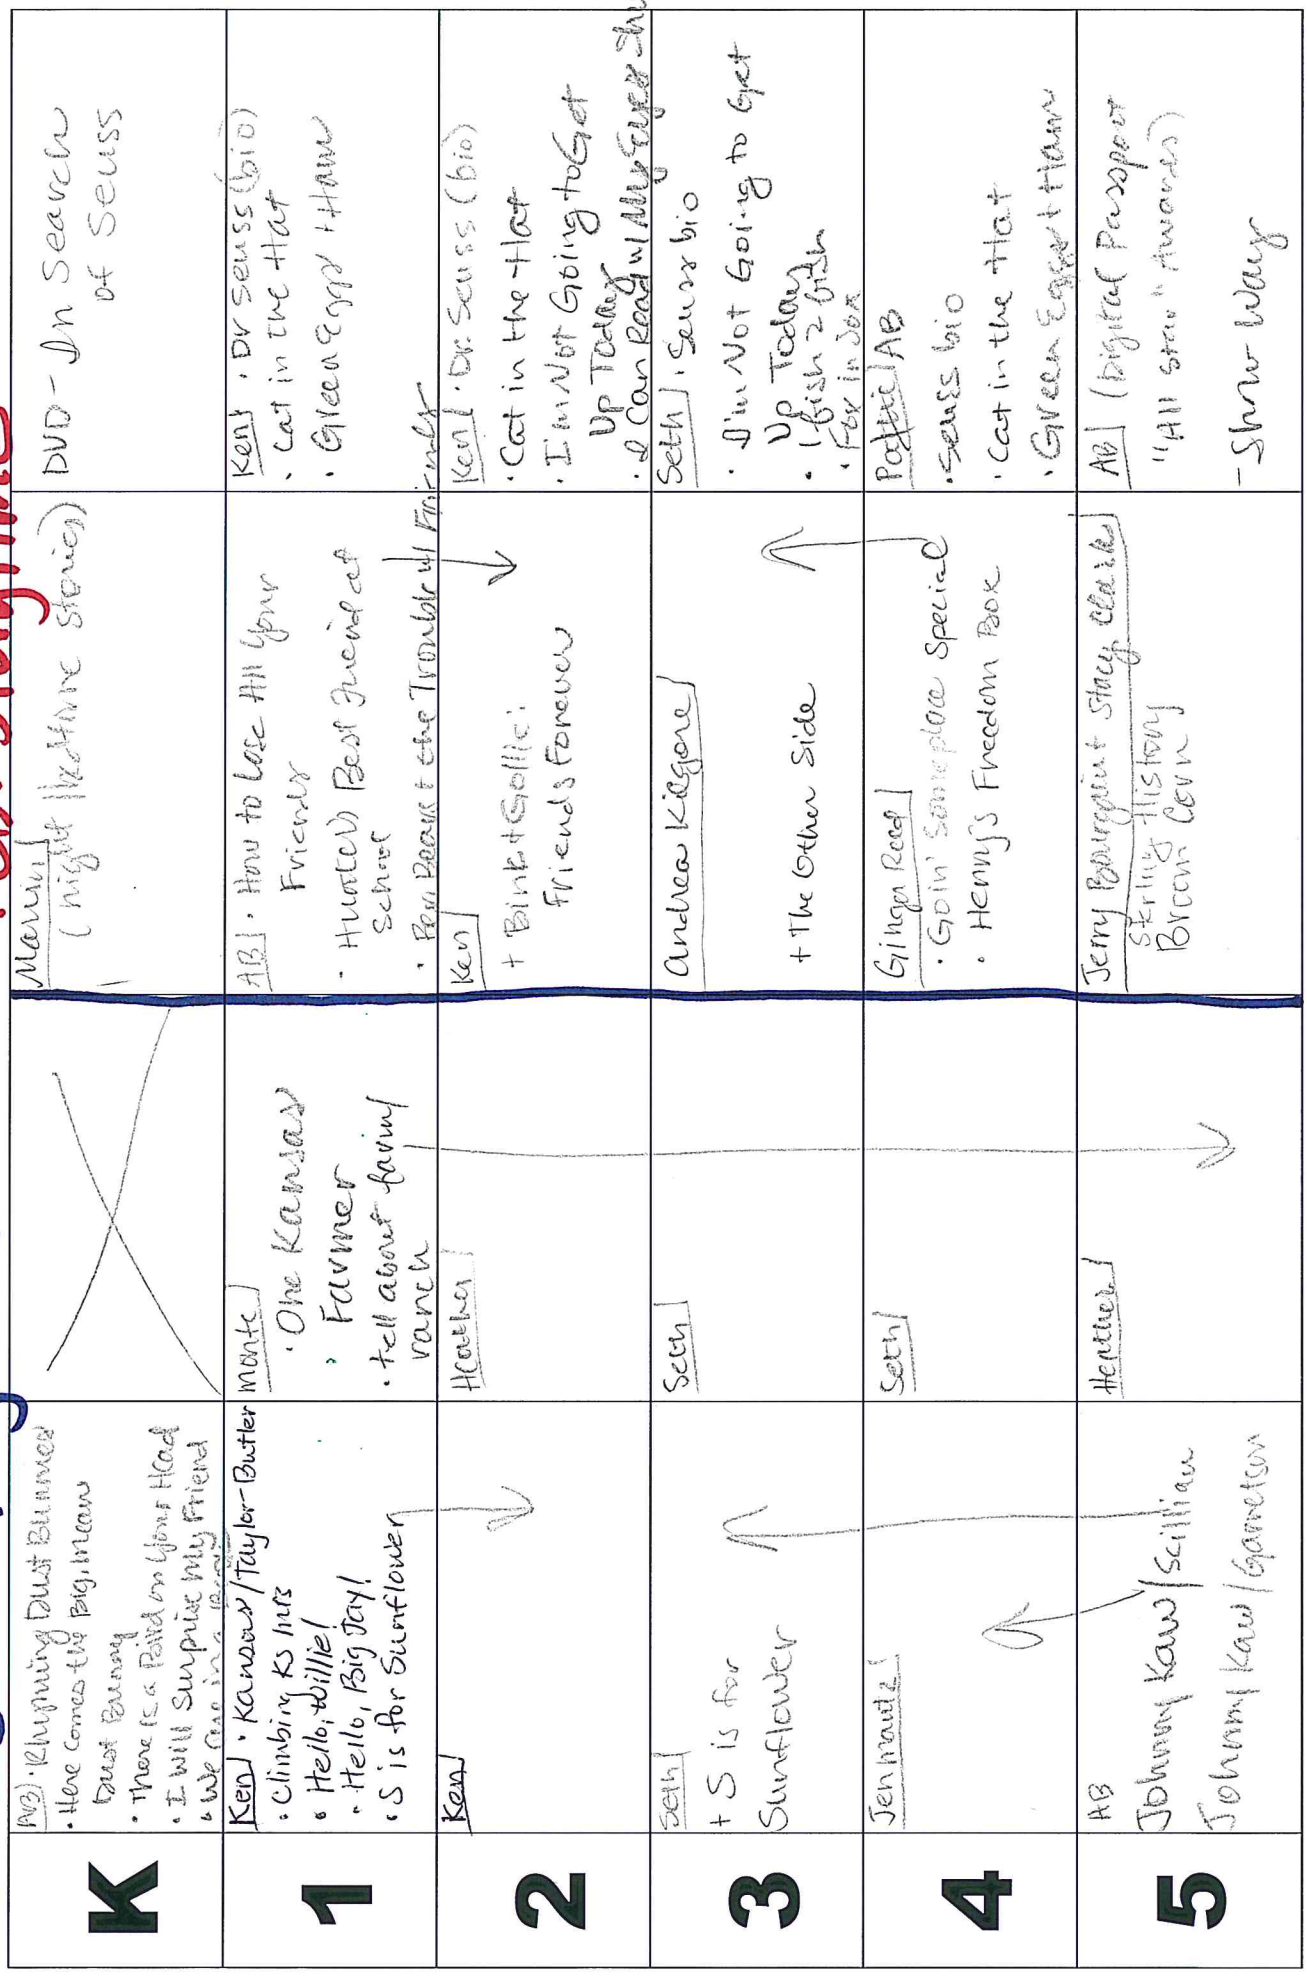 K
AB · Rhyming Dust Bunnies
· Here Comes the Big, Mean
Dust Bunny
· There is a Bird on Your Head
· I will Surprise My Friend
Marin
(night theme stories)
DVD - In Search
of Seuss
1
Ken · Kansas / Taylor-Butler
· Climbing KS Mts
· Hello, Willie!
· Hello, Big Jay!
· S is for Sunflower
Monte
· One Kansas
Farmer
· tell about farm/
ranch
AB · How to Lose All Your
Friends
· Hunter's Best Friend at
School
· Bear + the Trouble w/ Friends
Ken · Dr Seuss (bio)
· Cat in the Hat
· Green Eggs + Ham
2
Ken
Heather
Ken
+ Bink + Gollie:
Friends Forever
Ken · Dr. Seuss (bio)
· Cat in the Hat
· I'm Not Going to Get
Up Today
· I Can Read w/ My Eyes Shu
3
Seth
+ S is for
Sunflower
Seth
Andrea Kilgore
+ The Other Side
Seth · Seuss bio
· I'm Not Going to Get
Up Today
· 1 fish 2 fish
· Fox in Sox
4
Jen Mantz
Seth
Ginger Reed
· Goin' Someplace Special
· Henry's Freedom Box
/AB
· Seuss bio
· Cat in the Hat
· Green Eggs + Ham
5
AB
Johnny Kaw / Scillian
Johnny Kaw / Garretson
Heather
Jerry Bourquin + Stacy Clarks
String History
Broom Corn
AB (Digital Passport
"All Star" Awards)
- Show Way